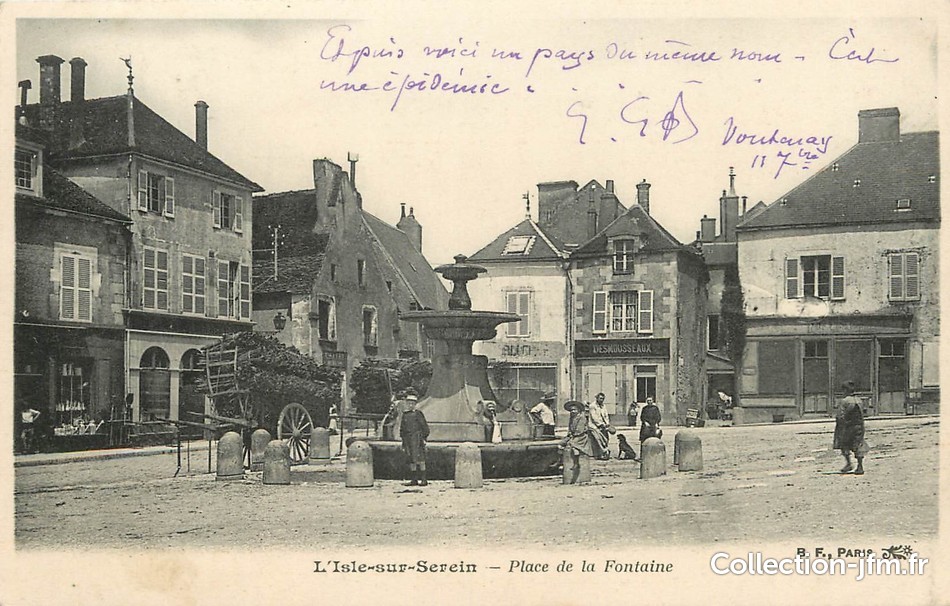 Et puis voici un pays du même nom - C'est
une épidémie
Voutenay
11 7bre
DESMOUSSEAUX
L'Isle-sur-Serein — Place de la Fontaine
B. F., PARIS
Collection-jfm.fr